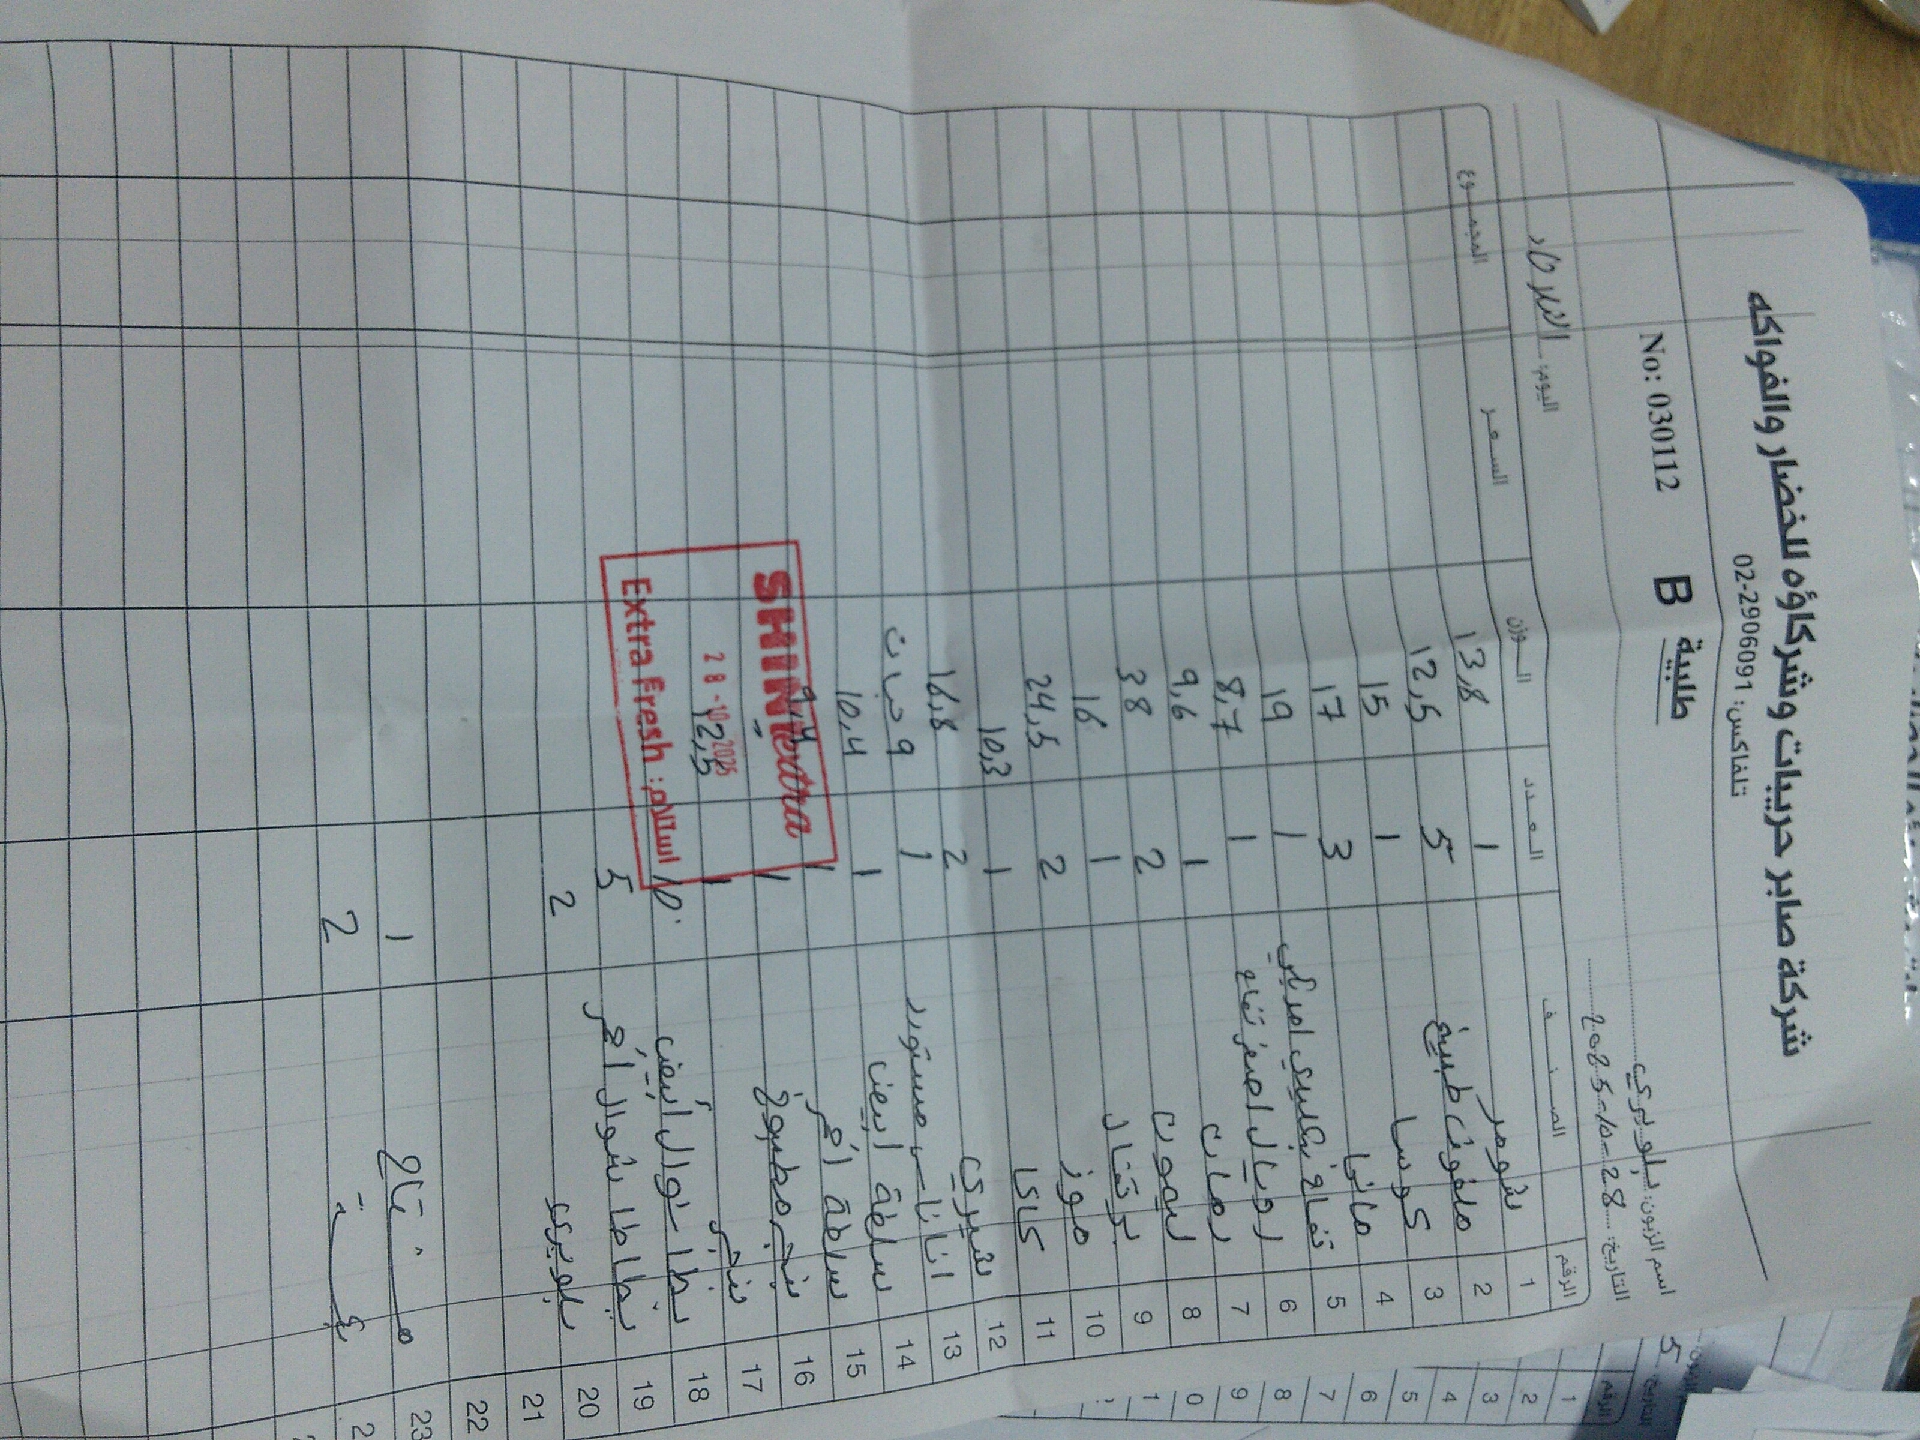 شركة صابر حريبات وشركاؤه للخضار والفواكه
تلفاكس: 02-2906091
No: 030112 B طلبية
اسم الزبون: بلوبري
التاريخ: 28-10-2025 اليوم: الثلاثاء
الرقم الصنف العدد الوزن السعر المجموع
1 شومر 1 13,8
2 ملفوف طبيخ 5 12,5
3 كوسا 1 15
4 مانجا 3 17
5 تفاح سكري امريكي 1 19
6 رويال اصفر تفاح 1 8,7
7 رمان 1 9,6
8 ليمون 2 38
9 برتقال 1 16
10 موز 2 24,5
11 كاكا 1 10,3
12 شيري 2 16,8
13 اناناس مستورد 1 9 حبات
14 سلطة ابيض 1 10,4
15 سلطة أحمر 1 9,4
16 بنجر مطبوخ 1
17 بنجر 1 12,5
18 بطاطا شوال أبيض 10
19 بطاطا شوال أحمر 5
20 بلوبري 2
21
22
23 1
2
SHINI extra
28-10-2025
Extra Fresh: استلام